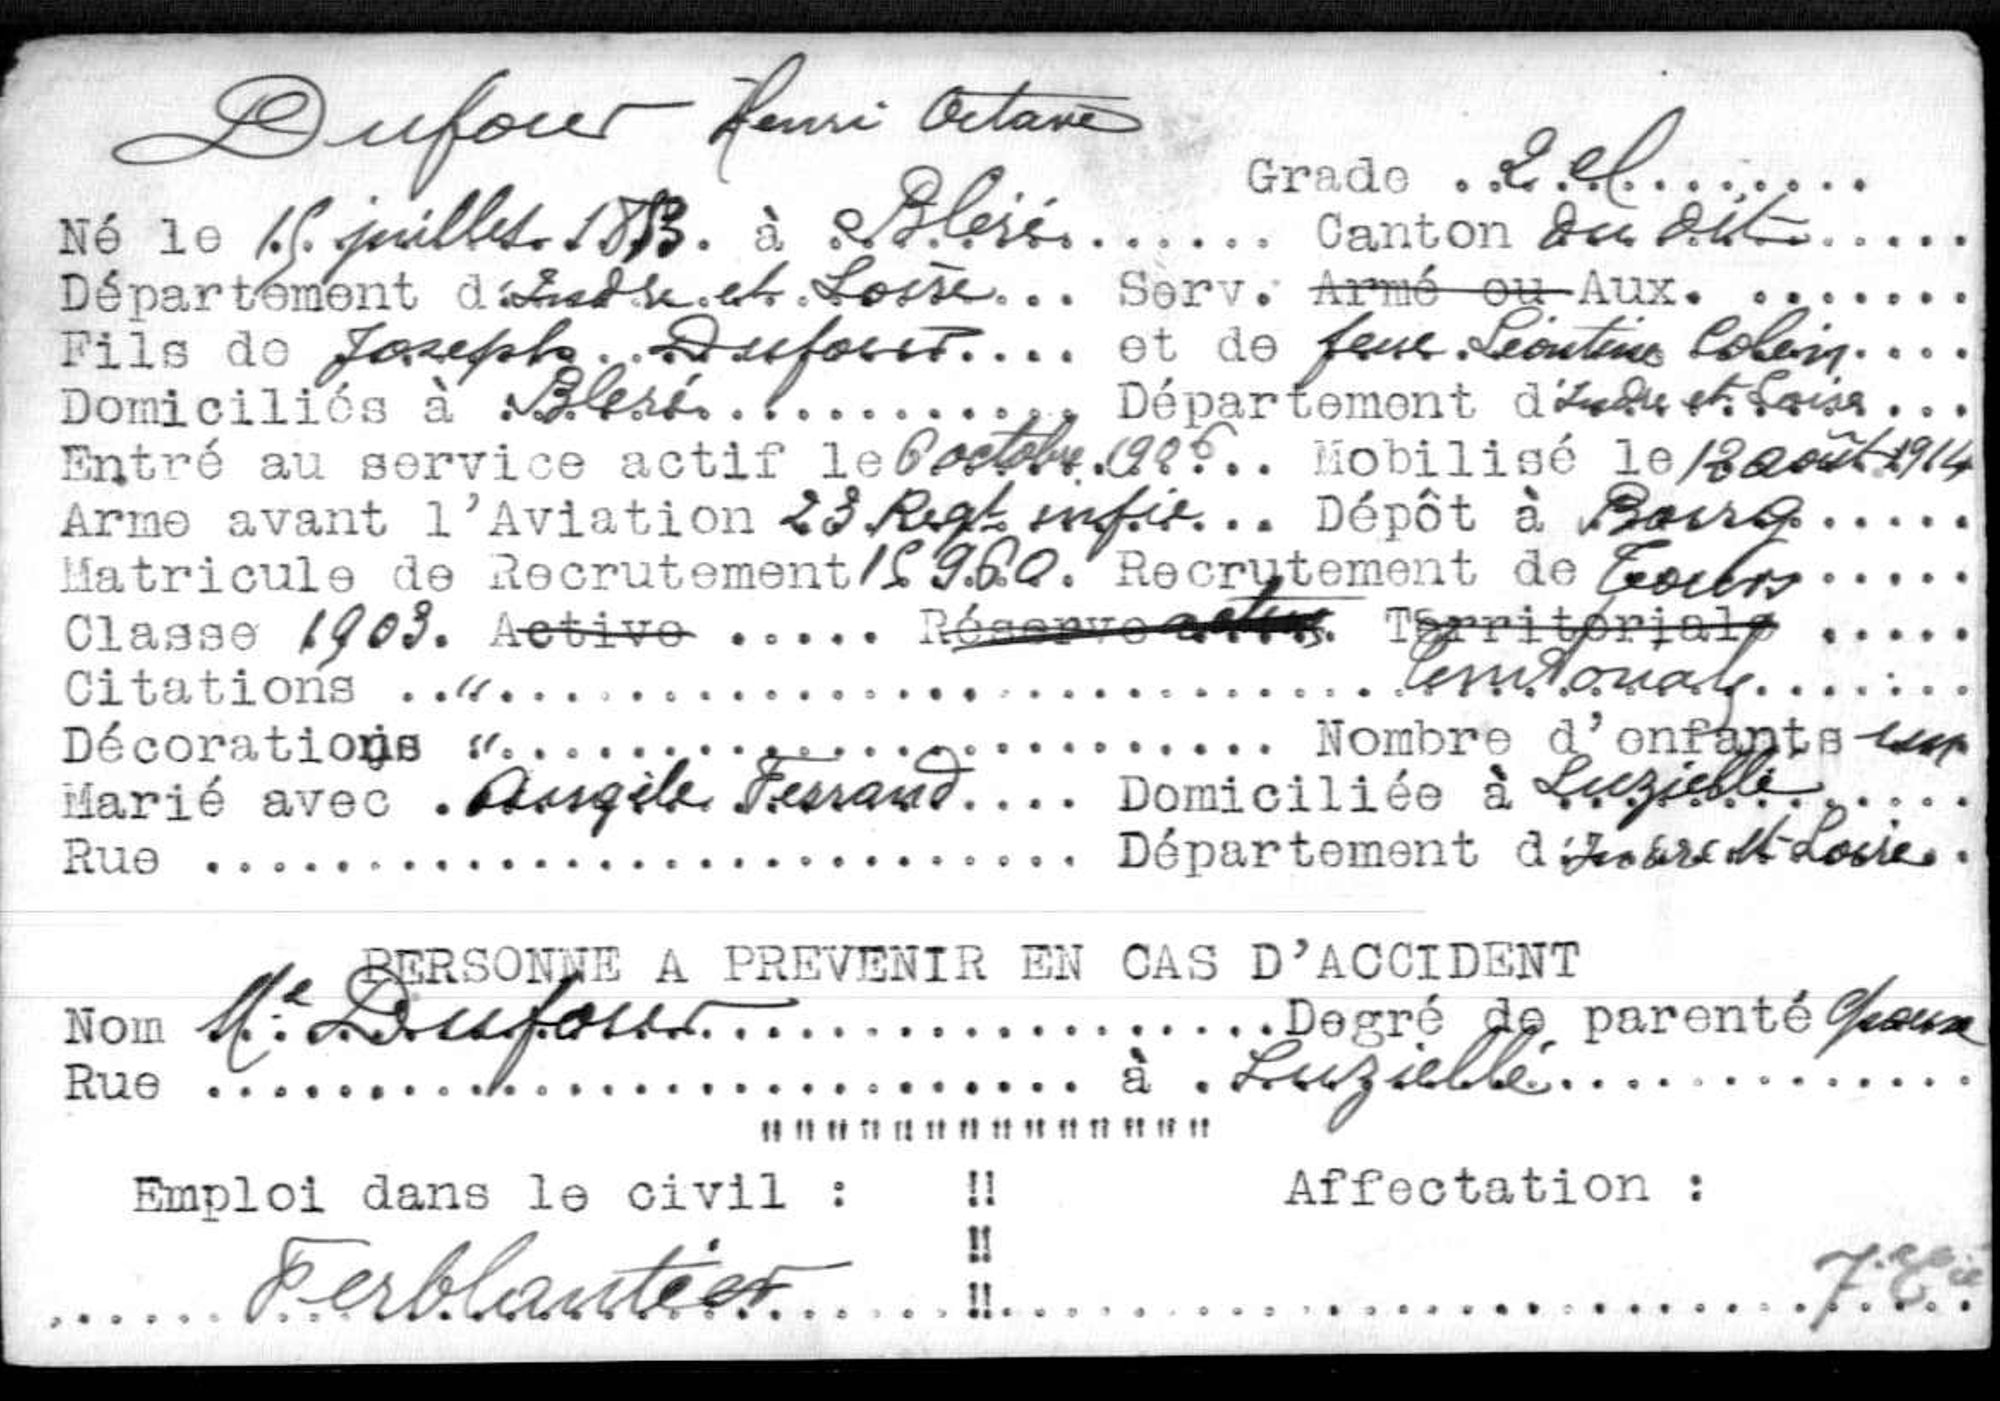 Dufour Henri Octave
Grade 2 cl
Né le 15 juillet 1883 à Bléré Canton du dit
Département d Indre et Loire Serv. Armé ou Aux.
Fils de Joseph Dufour et de feue Léontine Colin
Domiciliés à Bléré Département d Indre et Loire
Entré au service actif le 6 octobre 1906 Mobilisé le 12 août 1914
Arme avant l'Aviation 23 Regt infie Dépôt à Bourg
Matricule de Recrutement 15960. Recrutement de Tours
Classe 1903. Active Réserve active Territoriale
Citations " Territoriale
Décorations " Nombre d'enfants un
Marié avec Angèle Ferrand Domiciliée à Luzillé
Rue Département d Indre et Loire
PERSONNE A PREVENIR EN CAS D'ACCIDENT
Nom Me Dufour Degré de parenté épouse
Rue à Luzillé
""""""""""""""
Emploi dans le civil : !! Affectation :
!!
Ferblantier !! 7e Cie